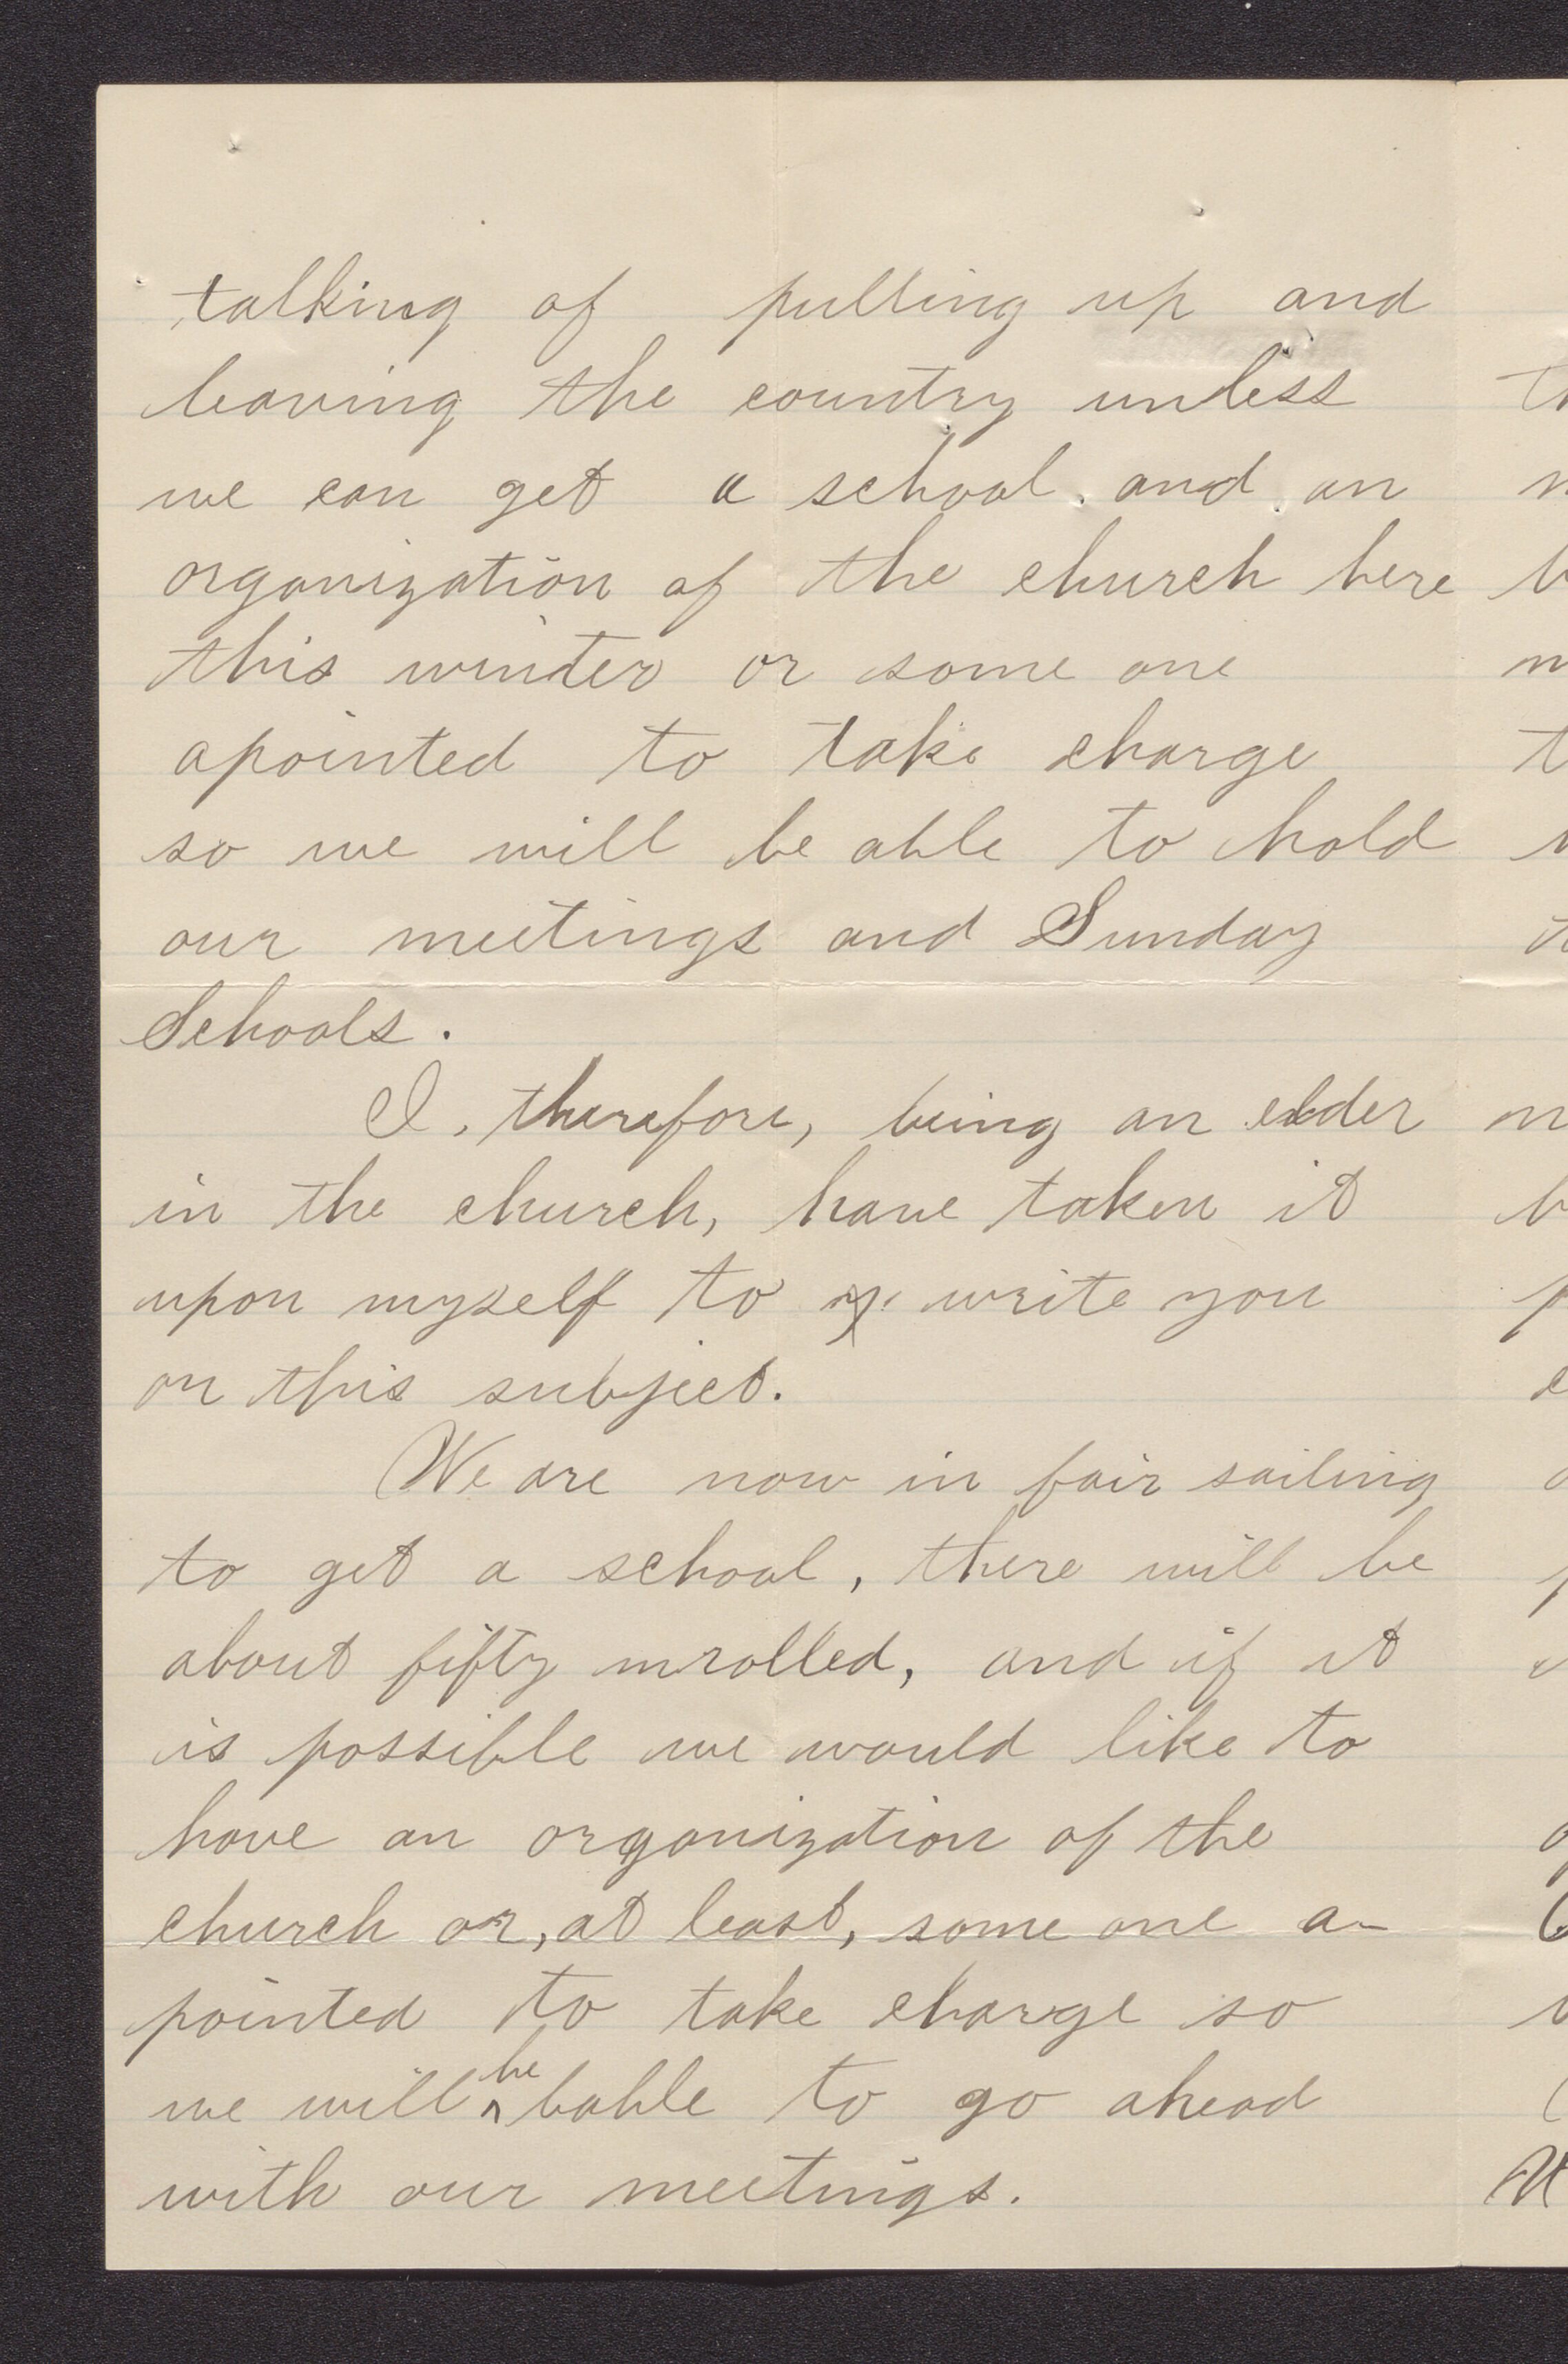 talking of pulling up and
leaving the country unless
we can get a school and an
organization of the church here
this winter or some one
apointed to take charge
so we will be able to hold
our meetings and Sunday
Schools.
I, therefore, being an elder
in the church, have taken it
upon myself to write you
on this subject.
We are now in fair sailing
to get a school, there will be
about fifty inrolled, and if it
is possible we would like to
have an organization of the
church or, at least, some one a-
pointed to take charge so
we will be bable to go ahead
with our meetings.